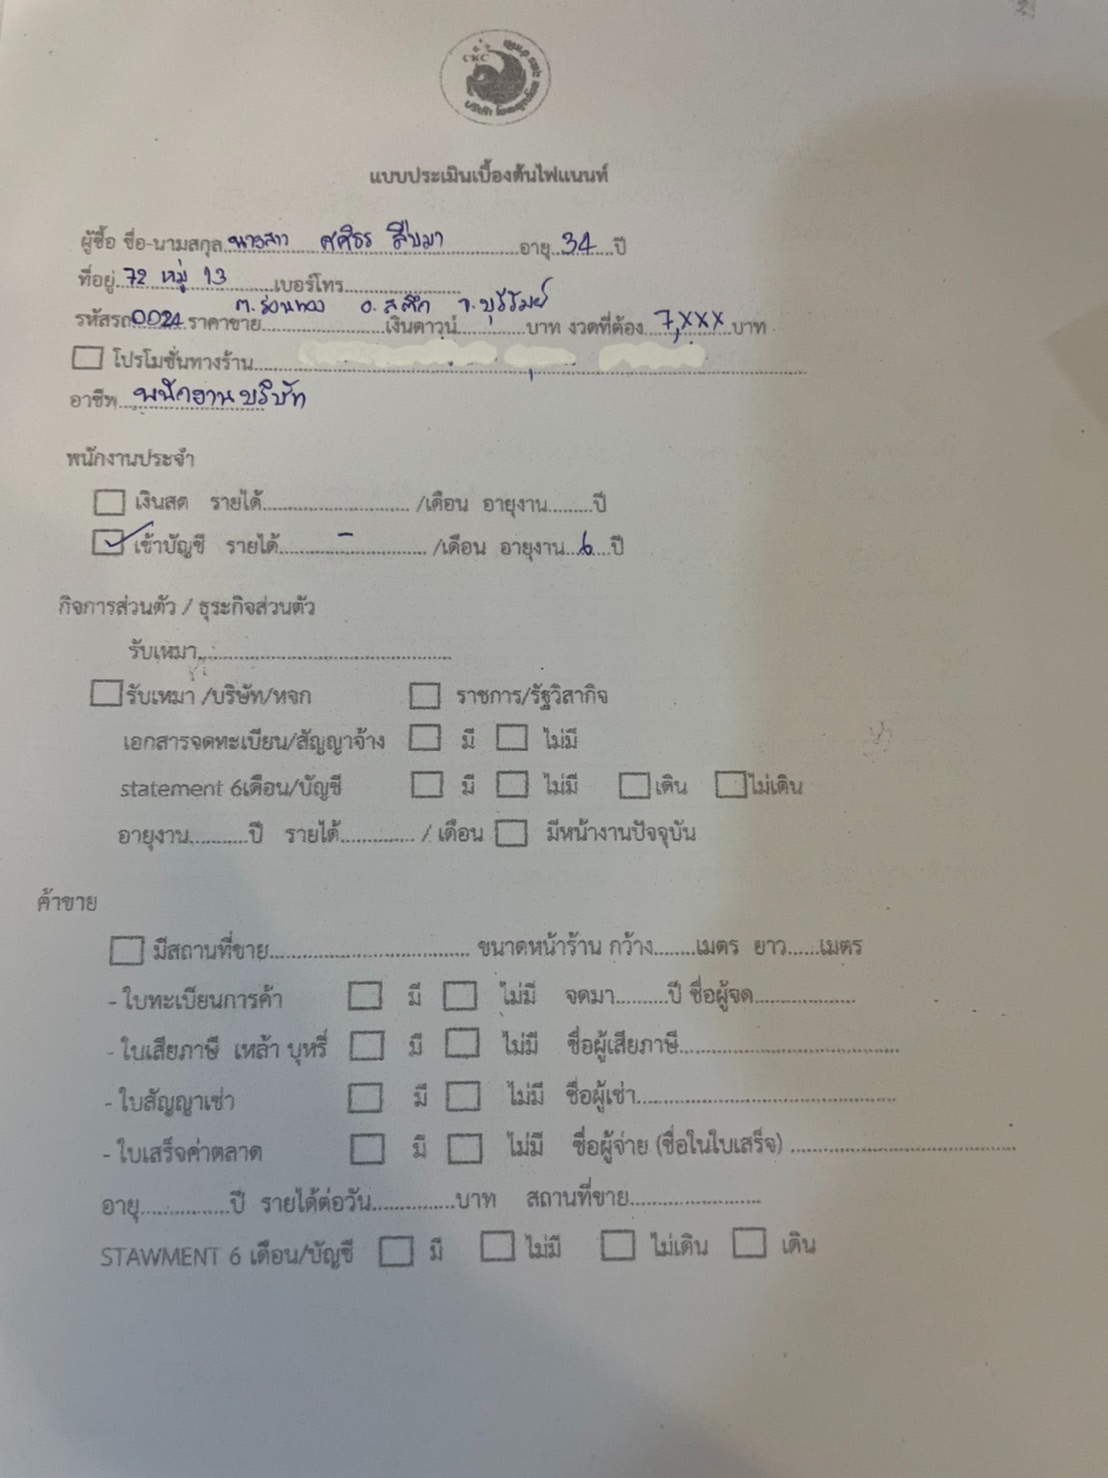 CKC
แบบประเมินเบื้องต้นไฟแนนท์
ผู้ซื้อ ชื่อ-นามสกุล นางสาว ศศิธร สืบมา อายุ 34 ปี
ที่อยู่ 72 หมู่ 13 เบอร์โทร
ต. ร่อนทอง อ. สตึก จ. บุรีรัมย์
รหัสรถ 0024 ราคาขาย เงินดาวน์ บาท งวดที่ต้อง 7,xxx บาท
โปรโมชั่นทางร้าน
อาชีพ พนักงานบริษัท
พนักงานประจำ
เงินสด รายได้ /เดือน อายุงาน ปี
เข้าบัญชี รายได้ - /เดือน อายุงาน 6 ปี
กิจการส่วนตัว / ธุระกิจส่วนตัว
รับเหมา
รับเหมา /บริษัท/หจก ราชการ/รัฐวิสากิจ
เอกสารจดทะเบียน/สัญญาจ้าง มี ไม่มี
statement 6เดือน/บัญชี มี ไม่มี เดิน ไม่เดิน
อายุงาน ปี รายได้ / เดือน มีหน้างานปัจจุบัน
ค้าขาย
มีสถานที่ขาย ขนาดหน้าร้าน กว้าง เมตร ยาว เมตร
- ใบทะเบียนการค้า มี ไม่มี จดมา ปี ชื่อผู้จด
- ใบเสียภาษี เหล้า บุหรี่ มี ไม่มี ชื่อผู้เสียภาษี
- ใบสัญญาเช่า มี ไม่มี ชื่อผู้เช่า
- ใบเสร็จค่าตลาด มี ไม่มี ชื่อผู้จ่าย (ชื่อในใบเสร็จ)
อายุ ปี รายได้ต่อวัน บาท สถานที่ขาย
STAWMENT 6 เดือน/บัญชี มี ไม่มี ไม่เดิน เดิน